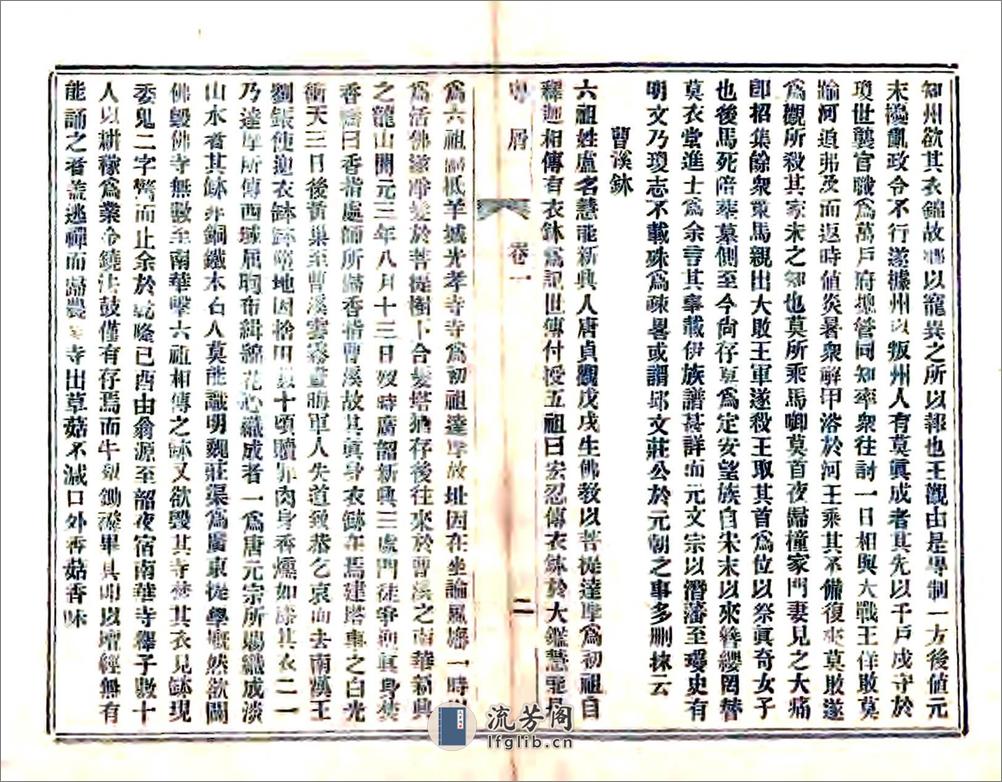 知州欲其衣錦故鄉以寵異之所以報也王觀由是專制一方後值元
末濁亂政令不行遂據州以叛州人有莫眞成者其先以千戶戍守於
瓊世襲官職為萬戶府總管同知率衆往討一日相與大戰王佯敗莫
踰河追弗及而返時値炎暑衆解甲浴於河王乘其不備復來莫敗遂
為觀所殺其家未之知也莫所乘馬啣莫首夜歸撞家門妻見之大痛
卽招集餘衆乘馬親出大敗王軍遂殺王取其首為位以祭眞奇女子
也後馬死陪葬墓側至今尙存莫為定安望族自宋末以來簪纓罔替
莫衣堂進士為余言其事載伊族譜甚詳而元文宗以潛藩至瓊史有
明文乃瓊志不載殊為疎畧或謂邱文莊公於元朝之事多刪抹云
曹溪鉢
六祖姓盧名慧能新興人唐貞觀戊戌生佛敎以菩提達摩為初祖自
釋迦相傳有衣鉢為記世傳付授五祖曰宏忍傳衣鉢於大鑑慧能是
粤屑
卷一
二
為六祖歸抵羊城光孝寺寺為初祖達摩故址因在坐論風旛一時
為活佛遂薙髮於菩提樹下合髮塔猶存後往來於曹溪之南華新興
之龍山開元三年八月十三日歿時廣韶新興三處門徒爭迎眞身焚
香禱曰香指處師所歸香指曹溪故其眞身衣鉢在焉建塔事之白光
衝天三日後黃巢至曹溪雲霧晝晦軍人失道致恭乞哀而去南漢王
劉鋹使迎衣鉢鉢淪地因捨田數十頃贖罪肉身香燻如漆其衣二一
乃達摩所傳西域屈眴布緝綿花心織成者一為唐元宗所賜織成淡
山水者其鉢非銅鐵木石人莫能識明魏莊渠為廣東提學慨然欲闢
佛毀佛寺無數至南華擊六祖相傳之鉢又欲毀其寺焚其衣見鉢現
委鬼二字驚而止余於乾隆己酉由翁源至韶夜宿南華寺釋子數十
人以耕稼為業令鐃法鼓僅有存焉而牛犂鋤櫌畢具叩以壇經無有
能誦之者蓋逃禪而歸農 寺出草菇不減口外香菇香味
流芳阁
lfglib.cn